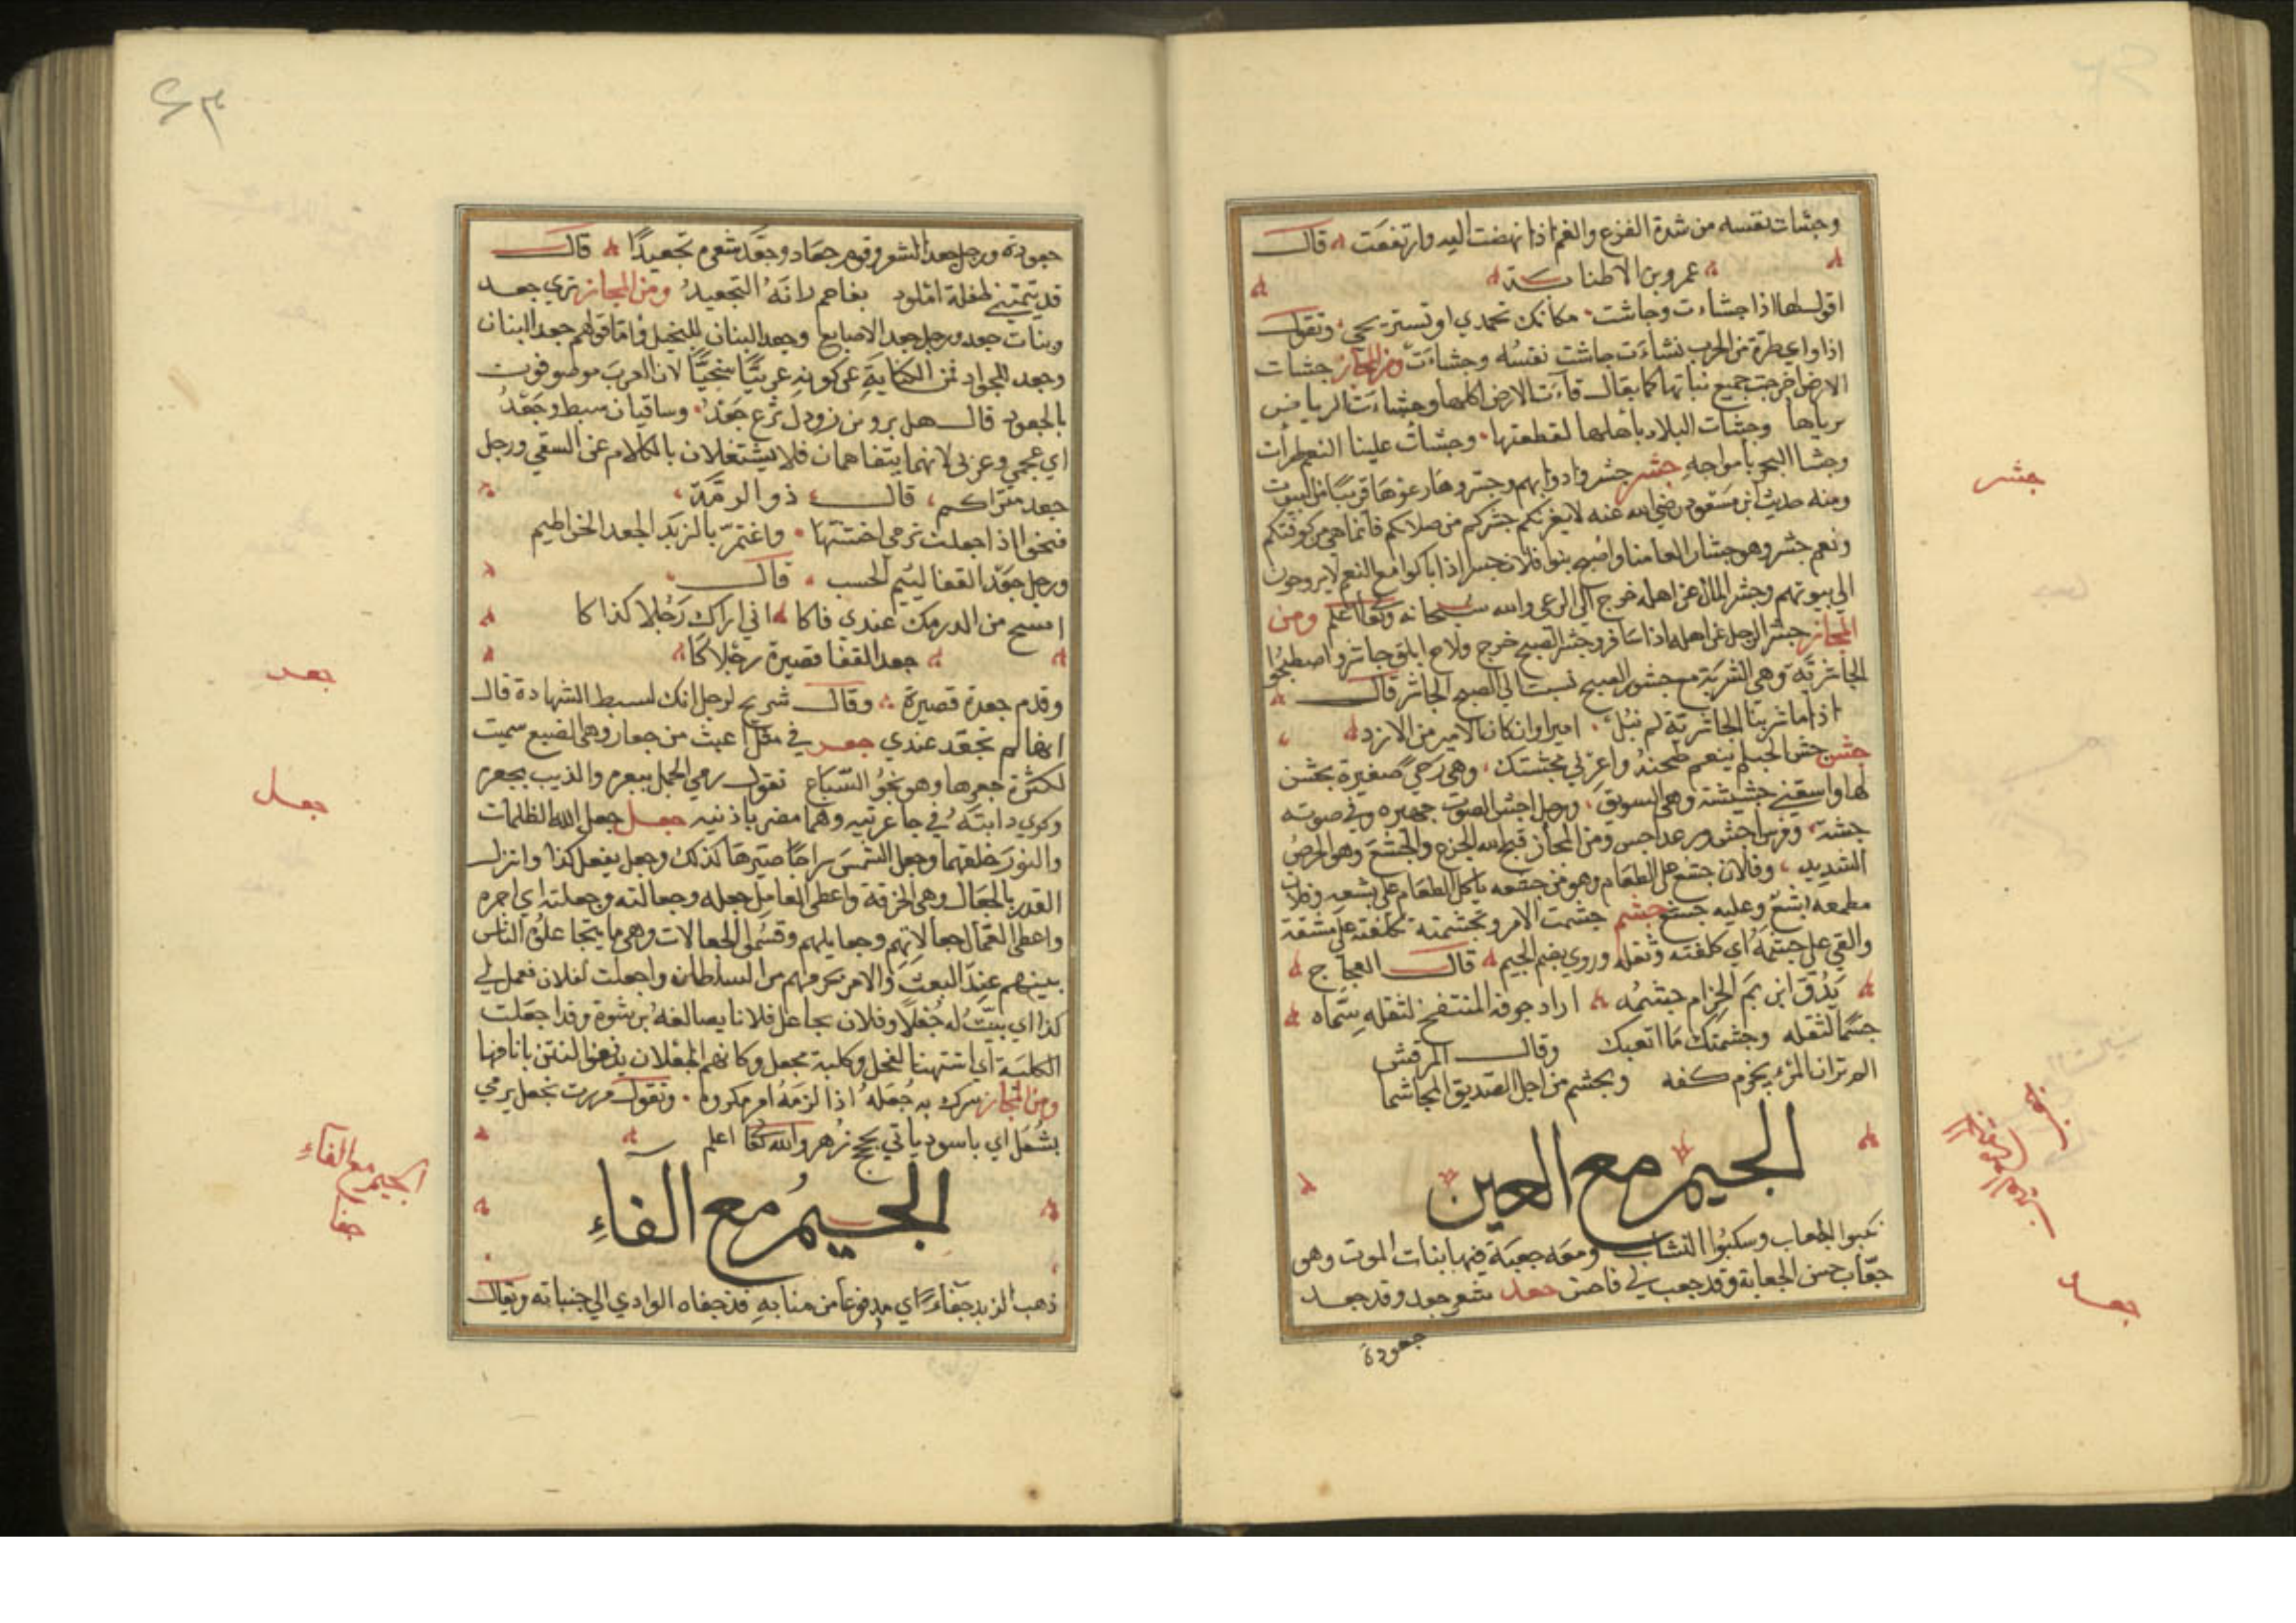 وجشأت نفسه من شدة الفزع والغم اذا نهضت اليه وارتفعت قال
عمرو بن الاطنابة
اقول لها اذا جشأت وجاشت مكانك تحمدي او تستريحي وتقول
اذا راي طرة من الحرب نشاءت جاشت نفسه وجشاءت ومن المجاز جشات
الارض اخرجت جميع نباتها كما يقال قاءت الارض اكلها وجشاءت الرياض
برياها وجشات البلاد باهلها لفظتها وجشأت علينا النعم طرات
وجشا البحر بامواجه جشر جشروا دوابهم وجشروها رعوها قريبا من البيوت
ومنه حديث ابن مسعود رضي الله عنه لا يغرنكم جشركم من صلاتكم فانما هي من كوفتكم
ونعم جشر وهو جشار انعامنا واصبح بنوا فلان جسرا اذا باكوا مع النعم لا يروحون
الى بيوتهم وجشر المال عن اهله خرج الى الرعي والله سبحانه وتعالى اعلم ومن
المجاز جشر الرجل عن اهله اذا سافر وجشر الصبح خرج ولاح ابلق جاشر واصطبحوا
الجاشرية وهي الشربة مع جشور الصبح نسبت الى الصبح الجاشر قال
اذا ما شربنا الجاشرية لم نبل اميرا وان كان الامير من الازد
جشن جش الحب لم ينعم طحنه واعرني مجشتك وهي رحي صغيرة يجشن
لها واسقني جشيشة وهي السويق ورجل اجش الصوت جهيره وفي صوته
جشة وفرس اجش ورعد اجس ومن المجاز قبح الله الجزع والجشع وهو الحرص
الشديد وفلان جشع على الطعام وهو من جشعه ياكل الطعام على بشعه وفلان
مطمعه ابشع وعليه جشع جشم جشمت الامر وتجشمته تكلفته على مشقة
والقي علي جشمه اي كلفته وثقله وروي بضم الجيم قال العجاج
يدق ابزيم الحزام جشمه اراد جوفه المنتفخ لثقله سماه
جشما لثقله وجشمتك ما اتعبك وقال المرقش
الم تر ان المرء يخزم كفه ويجشم من اجل الصديق المجاشما
الجيم مع العين
نكبوا الجعاب وسكبوا النشاب ومعه جعبة فيها بنات الموت وهو
جعاب حسن الجعابة وقد جعب لي فاحسن جعد شعر جعد وقد جعد
جعودة
جشر
جعد
جعودة ورجل جعد الشعر وقوم جعاد وجعد شعره تجعيدا قال
قد تيمتني طفلة املود بفاحم زانه التجعيد ومن المجاز تري جعد
ونبات جعد ورجل جعد الاصابع وجعد البنان للبخيل واما قولهم جعد البنان
وجعد للجواد فمن الكناية عن كونه عربيا سخيا لان العرب موصوفون
بالجعود قال هل يروين ذودك نزع جعد وساقيان سبط وجعد
اي عجمي وعربي لانهما يتفاهمان فلا يشتغلان بالكلام عن السقي ورجل
جعد متراكم قال ذو الرمة
تنجوا اذا جعلت تدمي اخشتها واغتم بالزبد الجعد الخراطيم
ورجل جعد القفا لئيم الحسب قال
امسح من الدرمك عندي فاكا اني اراك رجلا كذاكا
جعد القفا قصيرة رجلاكا
وقدم جعدة قصيرة وقال شريح لرجل انك لسبط الشهادة قال
انها لم تجعد عندي جعر في مثل اعبث من جعار وهي الضبع سميت
لكثرة جعرها وهو نجو السباع تقول رمي الجمل ببعره والذيب بجعره
وكوي دابته في جاعرتيه وهما مضرب باذنيه جعل جعل الله الظلمات
والنور خلقهما وجعل الشمس سراجا صيرها كذلك وجعل يفعل كذا وانزل
القدر بالجعال وهي الخرقة واعطى العامل جعله وجعالته وجعلته اي اجره
واعطى العمال جعالاتهم وجعايلهم وقسموا الجعالات وهي ما يتجاعله الناس
بينهم عند البعث والامر يحزبهم من السلطان واجعلت لفلان فعمل لي
كذا اي بينت له جعلا وفلان يجاعل فلانا يصانعه برشوة وقد اجعلت
الكلبة اي اشتهت الفحل وكلبة مجعل وكانهم الجعلان يدفعوا النتن بانافها
ومن المجاز سدك به جعله اذا لزمه امر مكروه وتقول مررت بجعل يرمي
بشعل اي باسود ياتي بحجج زهر والله تعالى اعلم
الجيم مع الفاء
ذهب الزبد جفاء اي مدفوعا من منابه قد جفاه الوادي الى جنباته ويقال
جعد
جعل
الجيم مع الفاء
جفا